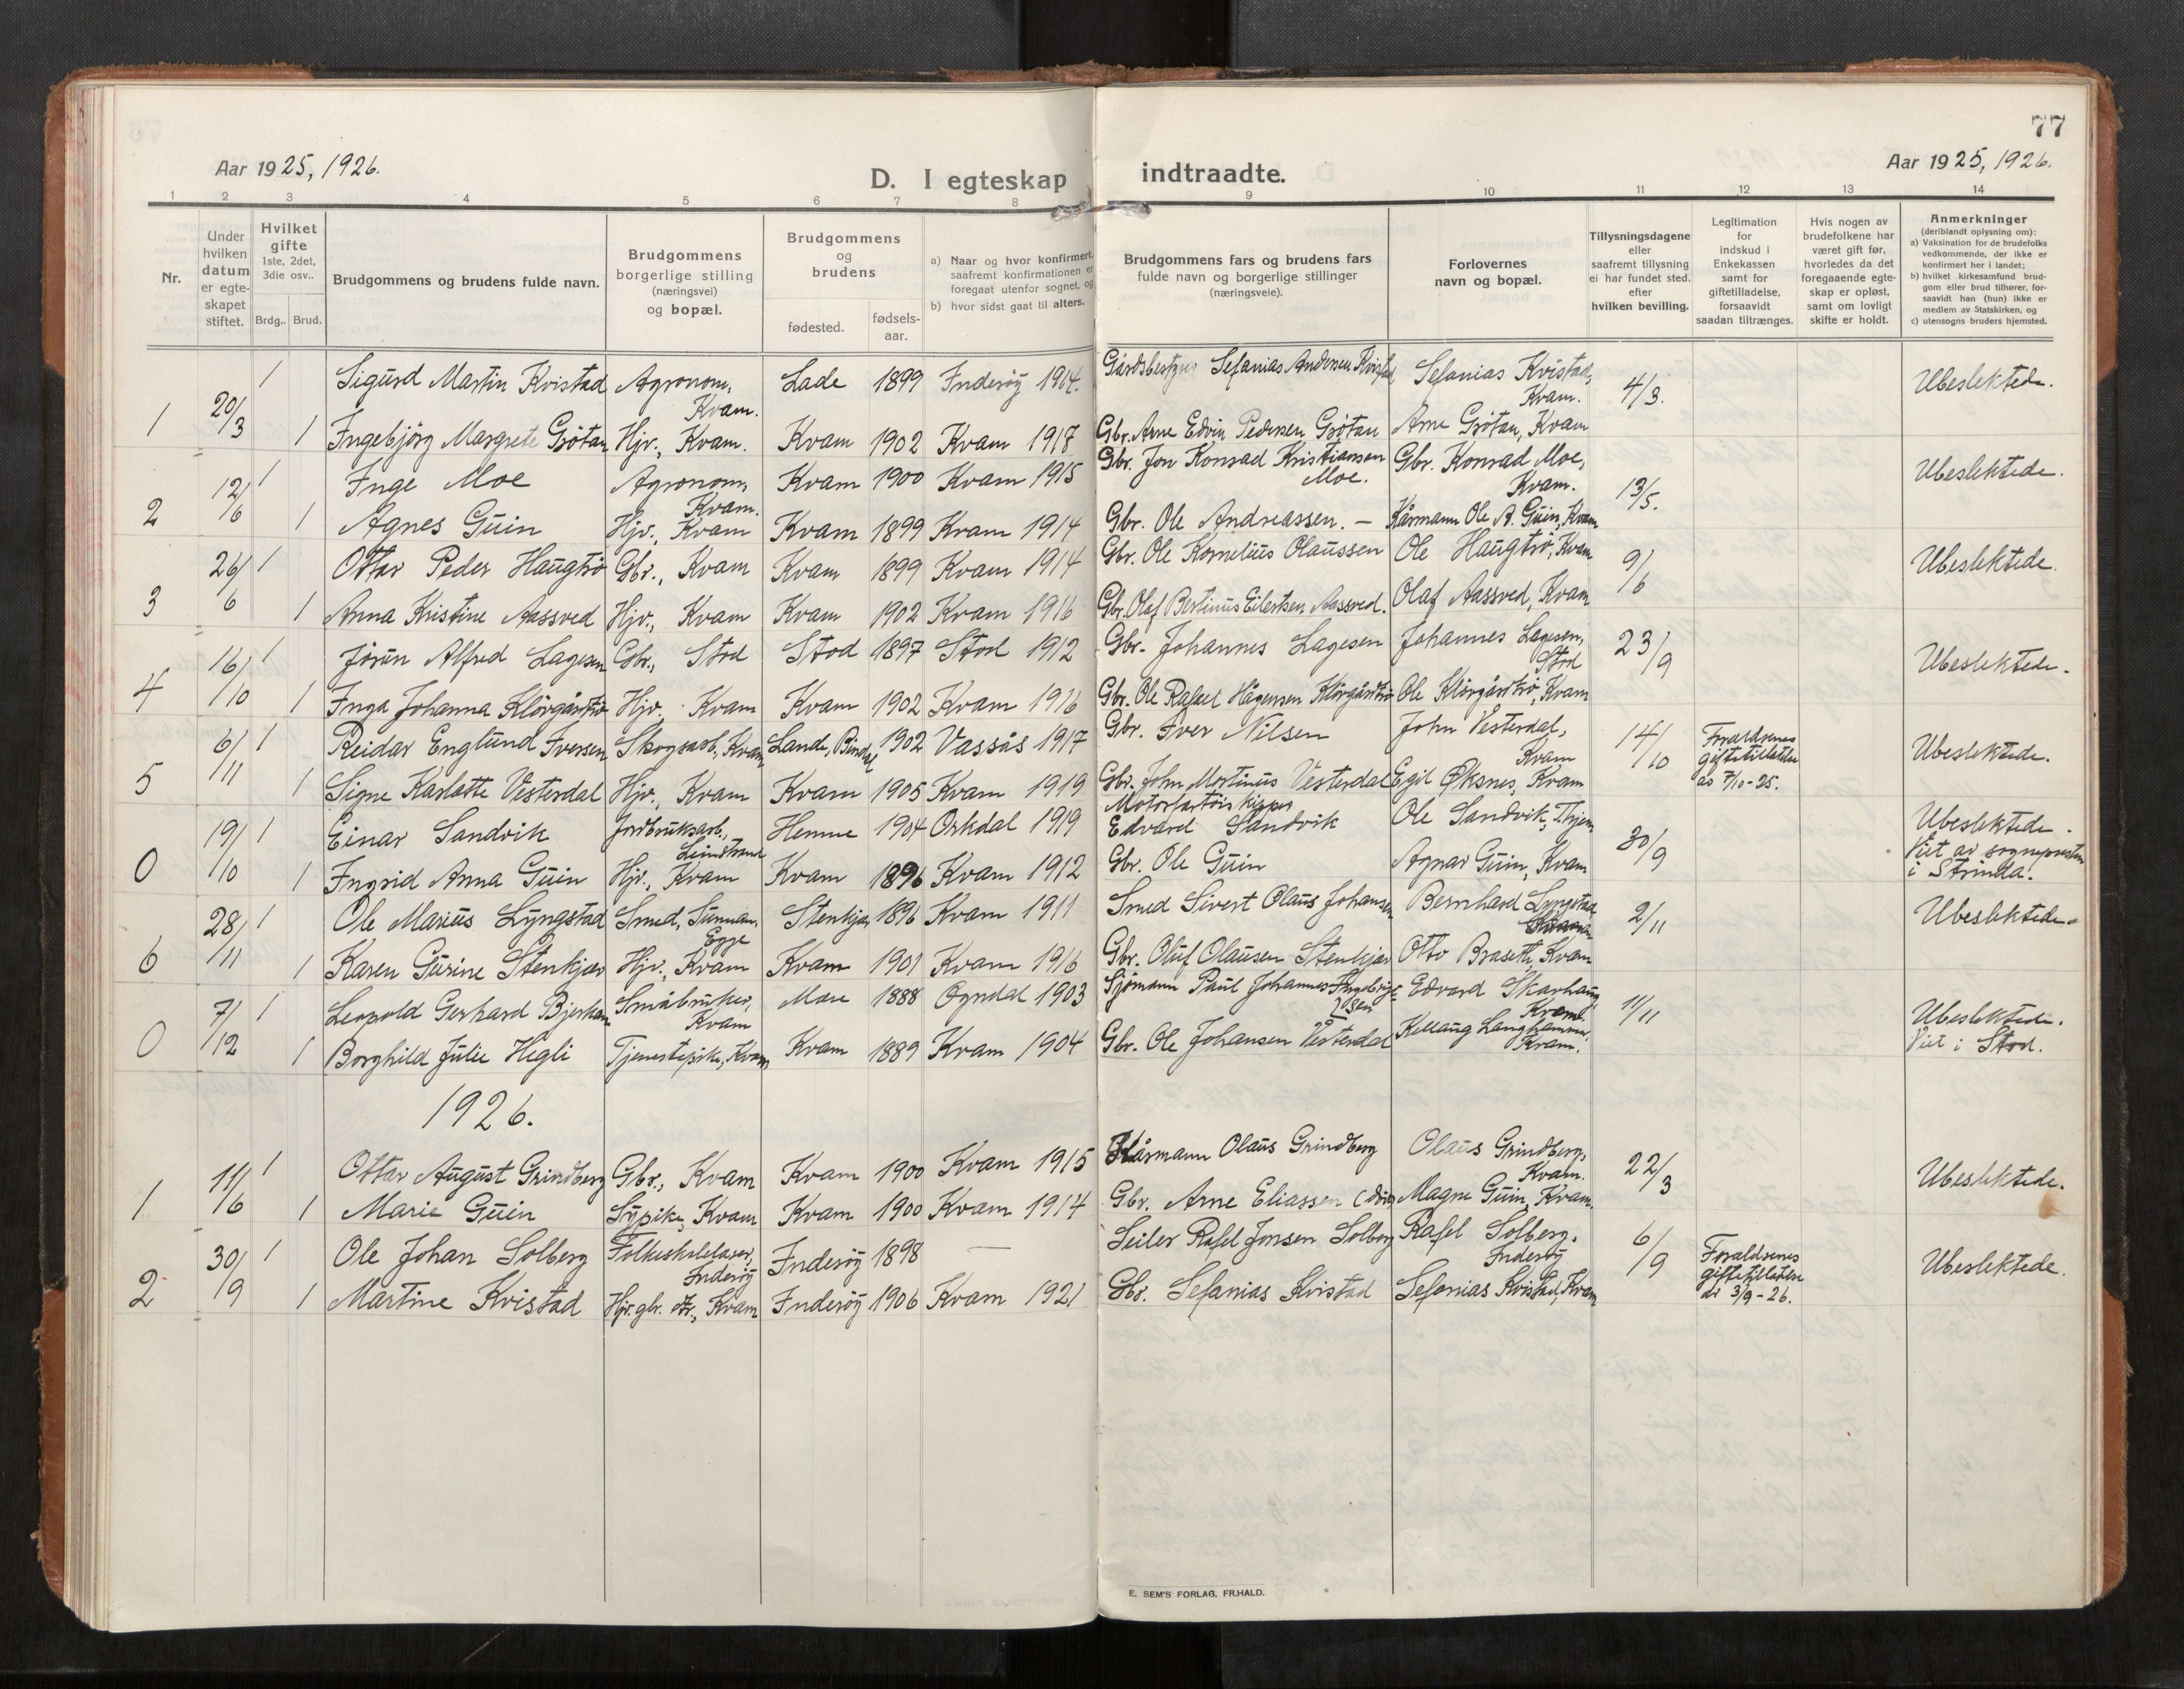 77
Aar 1925, 1926.
D. I egteskap indtraadte.
Aar 1925, 1926.
1 2 3 4 5 6 7 8 9 10 11 12 13 14
Nr.
Under
hvilken
datum
er egte-
skapet
stiftet.
Hvilket
gifte
1ste, 2det,
3die osv..
Brdg.. Brud.
Brudgommens og brudens fulde navn.
Brudgommens
borgerlige stilling
(næringsvei)
og bopæl.
Brudgommens
og
brudens
fødested.
fødsels-
aar.
a) Naar og hvor konfirmert,
saafremt konfirmationen er
foregaat utenfor sognet, og
b) hvor sidst gaat til alters.
Brudgommens fars og brudens fars
fulde navn og borgerlige stillinger
(næringsveie).
Forlovernes
navn og bopæl.
Tillysningsdagene
eller
saafremt tillysning
ei har fundet sted.
efter
hvilken bevilling.
Legitimation
for
indskud i
Enkekassen
samt for
giftetilladelse,
forsaavidt
saadan tiltrænges.
Hvis nogen av
brudefolkene har
været gift før,
hvorledes da det
foregaaende egte-
skap er opløst,
samt om lovligt
skifte er holdt.
Anmerkninger
(deriblandt oplysning om):
a) Vaksination for de brudefolks
vedkommende, der ikke er
konfirmert her i landet;
b) hvilket kirkesamfund brud-
gom eller brud tilhører, for-
saavidt han (hun) ikke er
medlem av Statskirken, og
c) utensogns bruders hjemsted.
1 20/3 1 Sigurd Martin Kvistad Agronom, Kvam. Lade 1899 Inderøy 1914. Gårdsbestyrer Sefanias Andersen Kvistad Sefanias Kvistad, Kvam. 4/3. Ubeslektede.
1 Ingebjörg Margrete Grötan Hjv., Kvam. Kvam 1902 Kvam 1917 Gbr. Arne Edvin Pedersen Grötan Arne Grötan, Kvam
2 12/6 1 Inge Moe Agronom, Kvam. Kvam 1900 Kvam 1915 Gbr. Jon Konrad Kristiansen Moe. Gbr. Konrad Moe, Kvam. 13/5. Ubeslektede.
1 Agnes Guin Hjv., Kvam Kvam 1899 Kvam 1914 Gbr. Ole Andreassen. — Kårmann Ole A. Guin, Kvam
3 26/6 1 Ottar Peder Haugtrö Gbr., Kvam Kvam 1899 Kvam 1914 Gbr. Ole Kornelius Olaussen Ole Haugtrö, Kvam 9/6 Ubeslektede.
1 Anna Kristine Aassved Hjv., Kvam Kvam 1902 Kvam 1916 Gbr. Olaf Bertinus Eilertsen Aassved. Olaf Aassved, Kvam
4 16/10 1 Jörun Alfred Lagesen Gbr., Stod Stod 1897 Stod 1912 Gbr. Johannes Lagesen Johannes Lagesen, Stod 23/9 Ubeslektede.
1 Inga Johanna Klörgårdtrö Hjv. Kvam Kvam 1902 Kvam 1916 Gbr. Ole Rafael Hågensen Klörgårdtrö Ole Klörgårdtrö, Kvam
5 6/11 1 Reidar Englund Iversen Skogsarb., Kvam Lande, Bindal 1902 Vassås 1917 Gbr. Iver Nilsen John Vesterdal, Kvam 14/10 Foraldrenes giftetillatelse av 7/10-25. Ubeslektede.
1 Signe Karlotte Vesterdal Hjv., Kvam Kvam 1905 Kvam 1919 Gbr. John Martinus Vesterdal Egil Øksnes, Kvam
0 19/10 1 Einar Sandvik Jordbruksarb., Leinstrand Hemne 1904 Orkdal 1919 Motorfartöiskipper Edvard Sandvik Ole Sandvik, 30/9 Ubeslektede. Viet av sognepresten i Strinda.
1 Ingrid Anna Guin Hjv., Kvam Kvam 1896 Kvam 1912 Gbr. Ole Guin Agnar Guin, Kvam
6 28/11 1 Ole Marius Lyngstad Smed, Sunnan, Egge Stenkjær 1896 Kvam 1911 Smed Sivert Olaus Johansen Bernhard Lyngstad 2/11 Ubeslektede.
1 Karen Gurine Stenkjær Hjv., Kvam Kvam 1901 Kvam 1916 Gbr. Oluf Olausen Stenkjær Otto Braseth, Kvam
0 7/12 1 Leopold Gerhard Bjerkan Småbruker, Kvam Mære 1888 Ogndal 1903 Sjömann Paul Johannes Ingebrigtsen Edvard Skarhaug Kvam. 11/11 Ubeslektede. Viet i Stod.
1 Borghild Julie Hegli Tjenestepike, Kvam Kvam 1889 Kvam 1904 Gbr. Ole Johansen Vesterdal Kellaug Langhammer, Kvam.
1926.
1 11/6 1 Ottar August Grindberg Gbr., Kvam Kvam 1900 Kvam 1915 Kårmann Olaus Grindberg Olaus Grindberg, Kvam. 22/3 Ubeslektede.
1 Marie Guin Sypike, Kvam Kvam 1900 Kvam 1914 Gbr. Arne Eliassen (död) Magne Guin, Kvam.
2 30/9 1 Ole Johan Solberg Folkeskolelærer, Inderøy Inderøy 1898 — Seiler Rafel Jonsen Solberg Rafel Solberg, Inderøy 6/9 Foraldrenes giftetillatelse av 3/9-26. Ubeslektede.
1 Martine Kvistad Hjv. gbr. dtr., Kvam Inderøy 1906 Kvam 1921 Gbr. Sefanias Kvistad Sefanias Kvistad, Kvam
E. SEM'S FORLAG, FR.HALD.